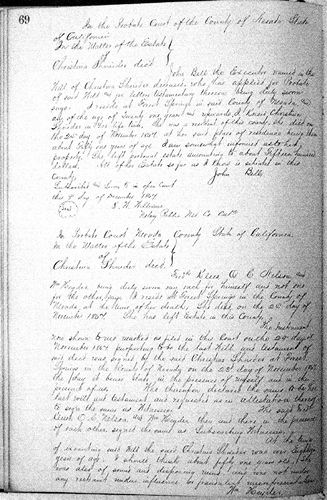 69
In the Probate Court of the County of Nevada State
of California
In the Matter of the Estate
of
Christina Shnider decd
John Bell the Executor named in the
Will of Christina Shnider deceased, who has applied for Probate
of said Will and for letters testamentary thereon being duly sworn
says I reside at Forest Springs in said County of Nevada am
of the age of Twenty one years and upwards I knew Christina
Shnider in her life time. She was a resident of this county She died on
the 20th day of November 1857 at her said place of residence being then
about Fifty one years of age I am somewhat informed as to her
property. She left real estate amounting to about Fifteen Hundred
Dollars. All of the Estate so far as I know is situated in this
County.
John Bell
Subscribed and Sworn to in open Court
this 7 day of December 1857
Seal
Notary Public Nev Co Cal
In Probate Court Nevada County State of California
In the Matter of the Estate
of
Christina Shnider decd.
O. C. Nelson and
Wm Heyder being duly sworn says each for himself and not one
for the other, says I reside at Forest Springs in the County of
Nevada at the time of her death, She died on the 20th day of
November 1857. She has left Estate in this County.
The Instrument
now shown to me marked as filed in this Court on the day of
November 1857 purporting to be the last Will and testament of
said decd was signed by the said Christina Shnider at Forest
Springs in the County of Nevada on the 20th day of November 1857
the day it bears date, in the presence of myself and in the
presence of
She thereupon declared the same to be her
last will and testament and requested us in attestation thereof
to sign the same as Witnesses. The said
O. C. Nelson and Wm Heyder then and there in the presence
of each other signed the same as Subscribing Witnesses
At the time
of executing said Will the said Christina Shnider was over Eighteen
years of age I should think about fifty one years old. She
was also of sound and disposing mind and was not under
any restraint undue influence or fraudulent misrepresentation
Wm Heyder